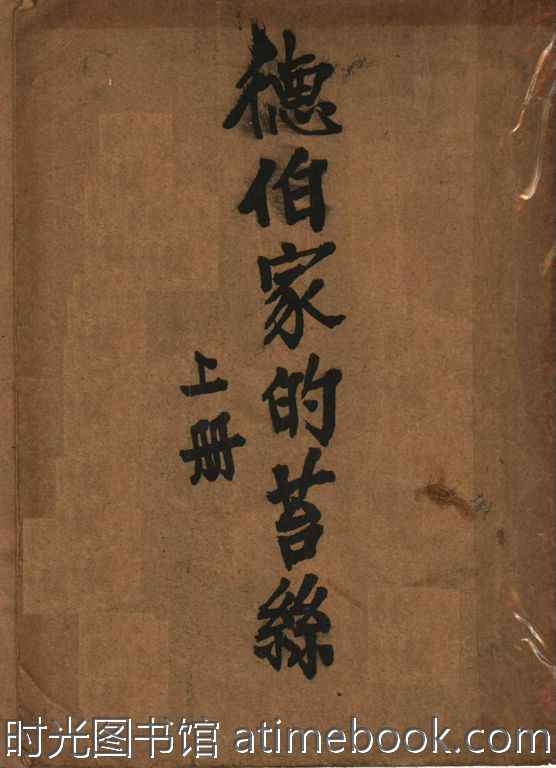 德伯家的苔絲
上册
时光图书馆 atimebook.com